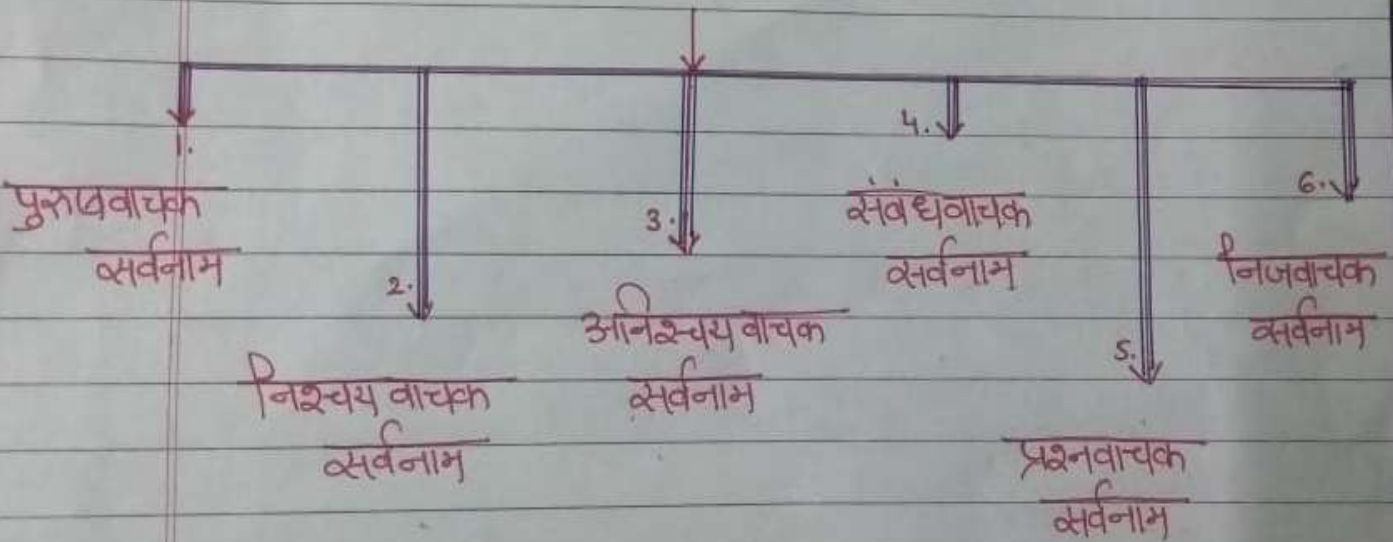 1.
पुरुषवाचक
सर्वनाम
2.
निश्चय वाचक
सर्वनाम
3.
अनिश्चय वाचक
सर्वनाम
4.
संबंधवाचक
सर्वनाम
5.
प्रश्नवाचक
सर्वनाम
6.
निजवाचक
सर्वनाम